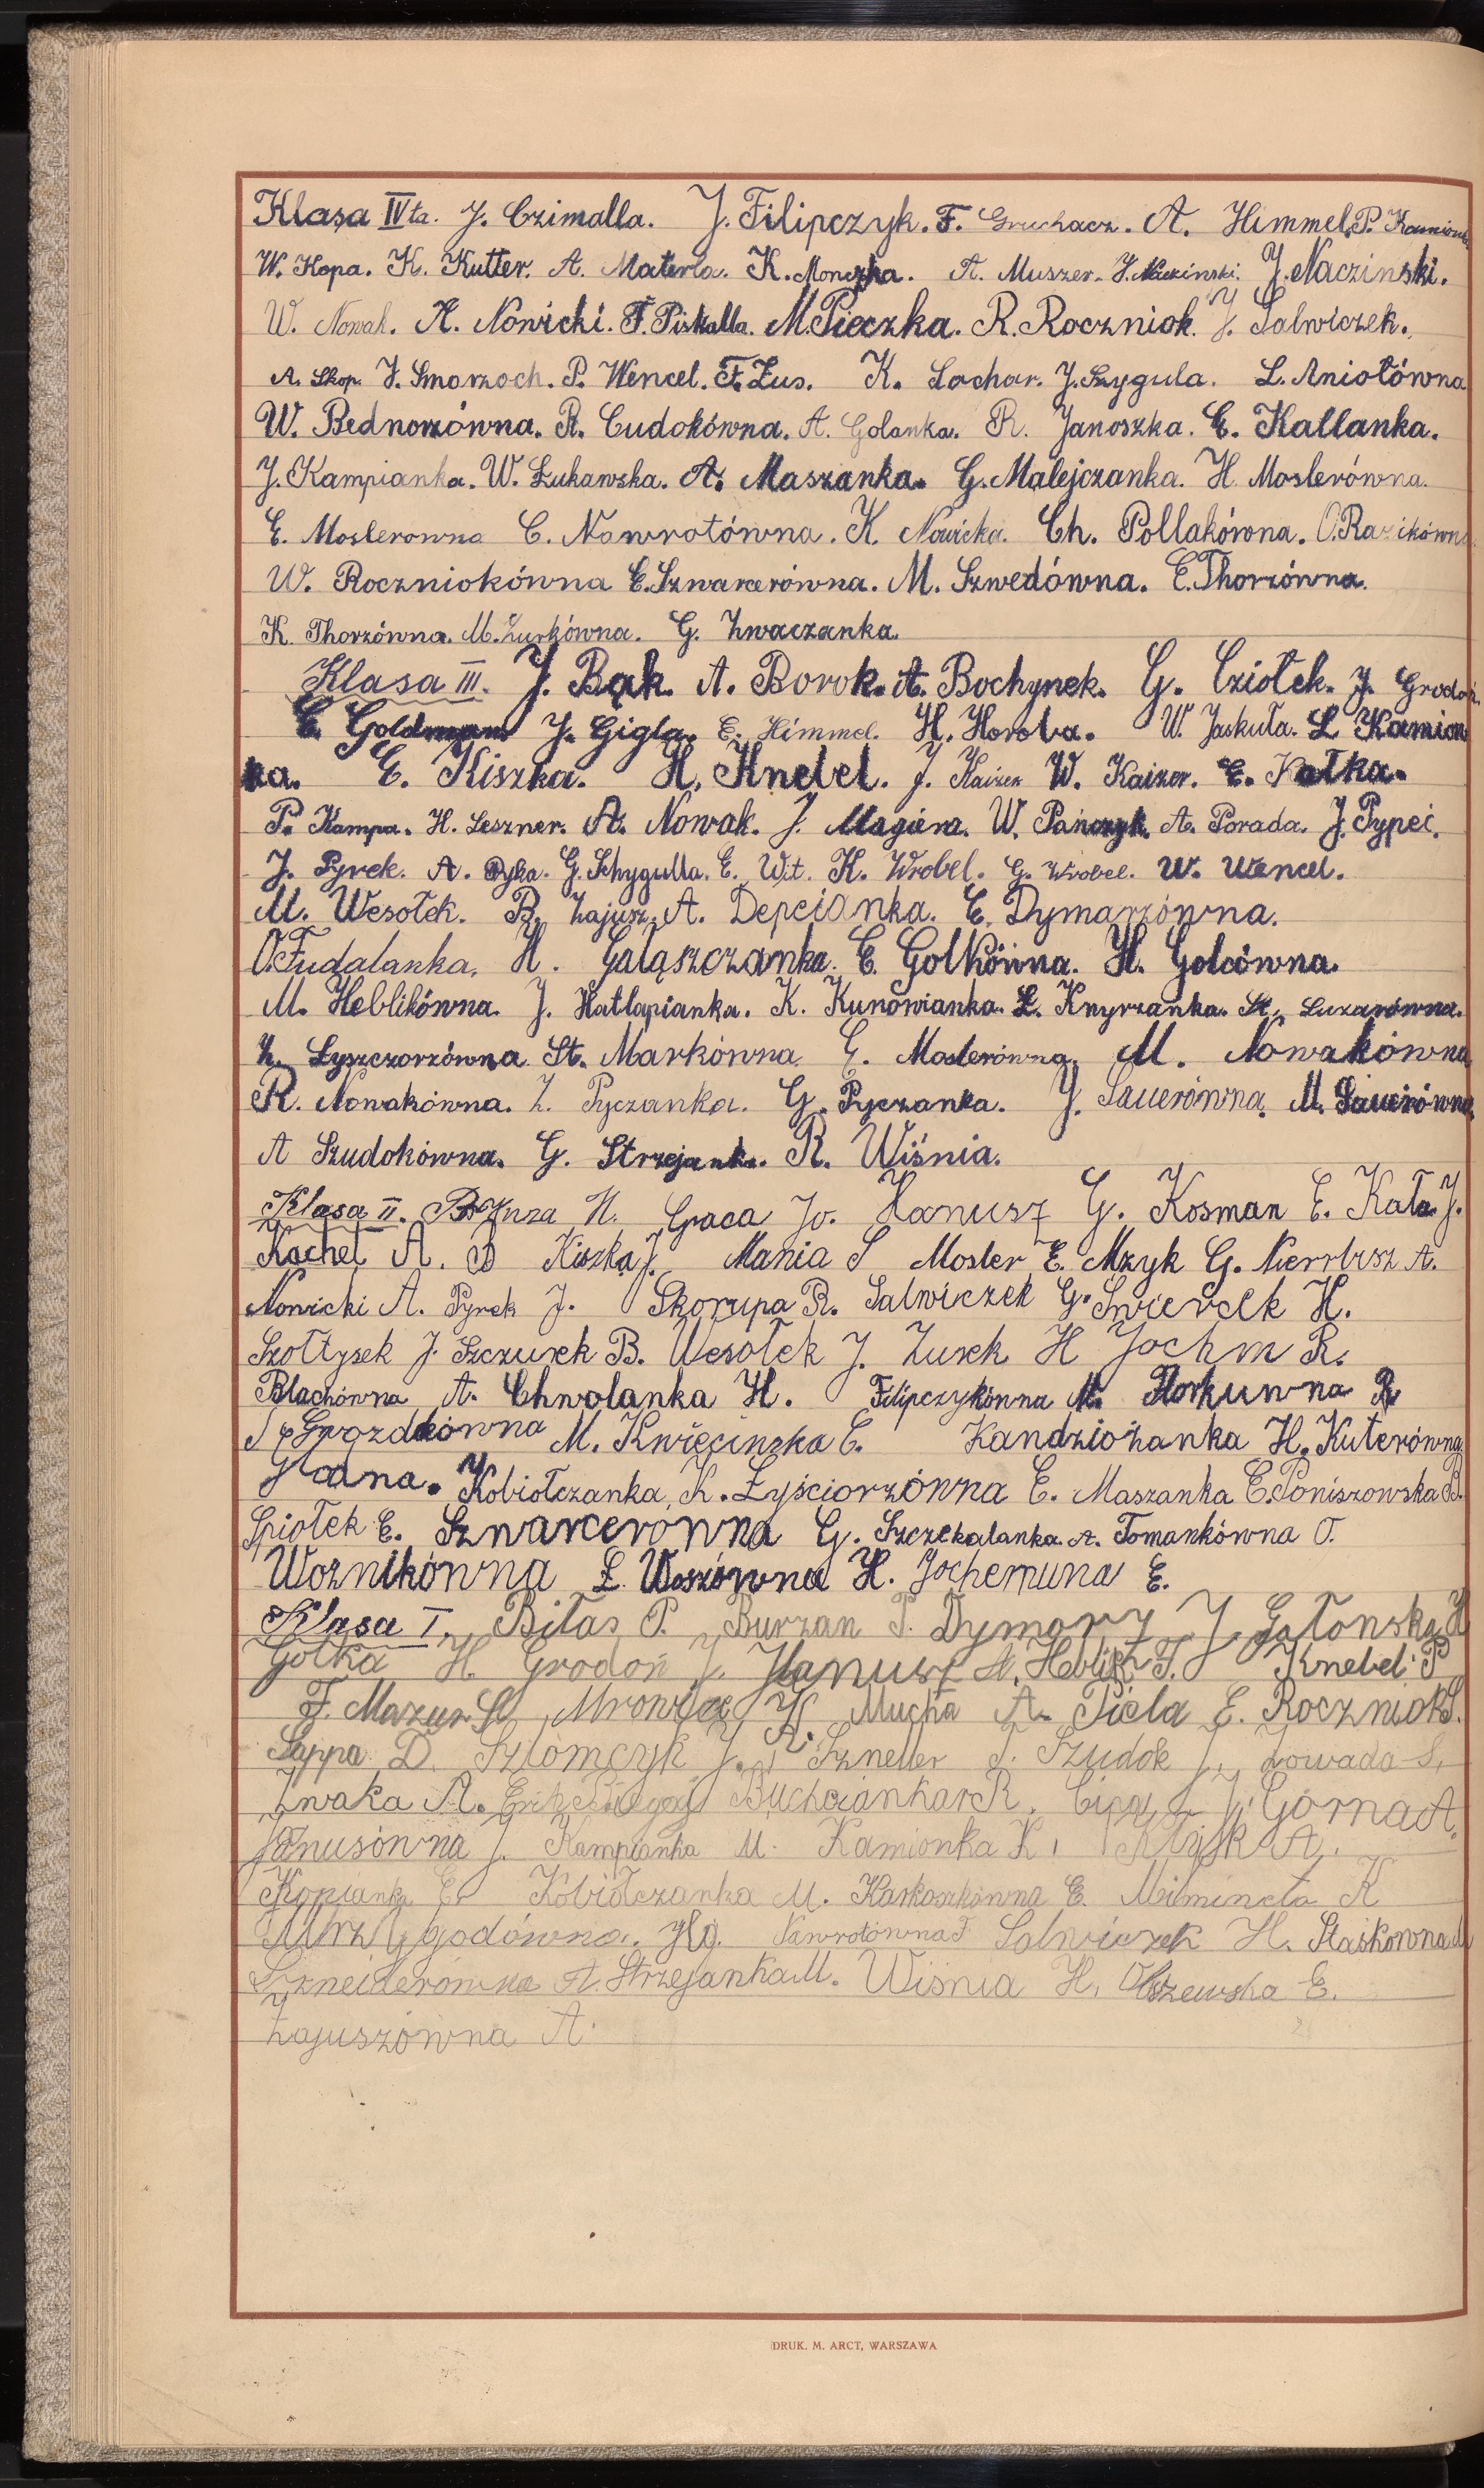 Klasa IVta. J. Czimalla. J. Filipczyk. F. Gruchacz. A. Himmel. P. Kamionka
W. Kopa. K. Kutter. A. Materla. K. Monczka. A. Muszer. J. Naczinski. J. Naczinski.
W. Nowak. A. Nowicki. F. Piskalla. M. Pieczka. R. Roczniok. J. Salwiczek.
A. Skop. J. Smorzoch. P. Wencel. F. Zus. K. Lochar. J. Szygula. L. Aniołówna
W. Bednorzówna. R. Cudokówna. A. Golanka. R. Janoszka. E. Kallanka.
J. Kampianka. W. Łukawska. A. Maszanka. G. Malejczanka. H. Moslerówna.
E. Moslerowna C. Nawrotówna. K. Nowicka. Ch. Pollakówna. O.
W. Roczniokówna E. Szwarcerówna. M. Szwedówna. E. Thorzówna.
K. Thorzówna. M. Żurkówna. G. Zwaczanka.
Klasa III. J. Bąk. A. Borok. A. Bochynek. G. Cziołek. J. Grodoń.
E. Goldman. J. Gigla. E. Himmel. H. Horoba. W. Jaskuła. L. Kamion
ka. E. Kiszka. H. Knebel. J. Kaizer W. Kaizer. E. Kołka.
P. Kampa. H. Leszner. A. Nowak. J. Magiera. W. Pańczyk. A. Porada. J. Pypeć.
J. Pyrek. A. Pyka. G. Schygulla. E. Wit. K. Wrobel. G. Wrobel. W. Wencel.
M. Wesołek. B. Zajusz. A. Depcianka. E. Dymarzówna.
O. Fudalanka. H. Gałąszczanka. E. Golkówna. H. Golcówna.
M. Heblikówna. J. Katlapianka. K. Kunowianka. L. Knyrzanka. St. Luzarówna.
Z. Łyszczorzówna St. Markówna E. Moslerówna. M. Nowakówna
R. Nowakówna. Z. Pyczanka. G. Pyczanka. J. Sauerówna. M. Sauerówna.
A Szudokówna. G. Strzejanka. R. Wiśnia.
Klasa II. H. Graca Jo. Hanusz G. Kosman E. Kała J.
Kachel A. B Kiszka J. Mania S Mosler E. Mzyk G. A.
Nowicki A. Pyrek J. Skorupa R. Salwiczek G. Swiercek H.
Szołtysek J. Szczurek B. Wesołek J. Żurek H Jochm R.
Blachówna A. Chwolanka H. Filipczykówna M. R
Gwozdkówna M. Kwięcinska E. Kandziożanka H. Kuterówna
Kobiołczanka, K. Łyściorzówna E. Maszanka E. Poniszowska B.
Spiołek E. Szwarcerowna G. Szczekalanka. A. Tomankówna O.
Woznikówna Ł Woszówna H. Jochemuna E.
Klasa I. Bitas P. Burzan P. Dymarz J. Gałonska H
Gołka H. Grodoń J. Hanusz A. Heblik F. Knebel P
F. Mazur St Mrowiec K. Mucha A. Piela E. Roczniok S.
Sappa D. Szłomczyk J. Szneller J. Szudok J. Zowada S.
Zwaka A. R. J. Górna A.
Janusówna J. Kampianka M. Kamionka K. A.
Kopianka E. Kobiołczanka M. Karkoszkówna E. K
Nawrotówna F Salwiczek H. Staśkowna M
Szneiderówna A. Strzejanka M. Wiśnia H. Olszewska E.
Zajuszówna A.
DRUK. M. ARCT, WARSZAWA